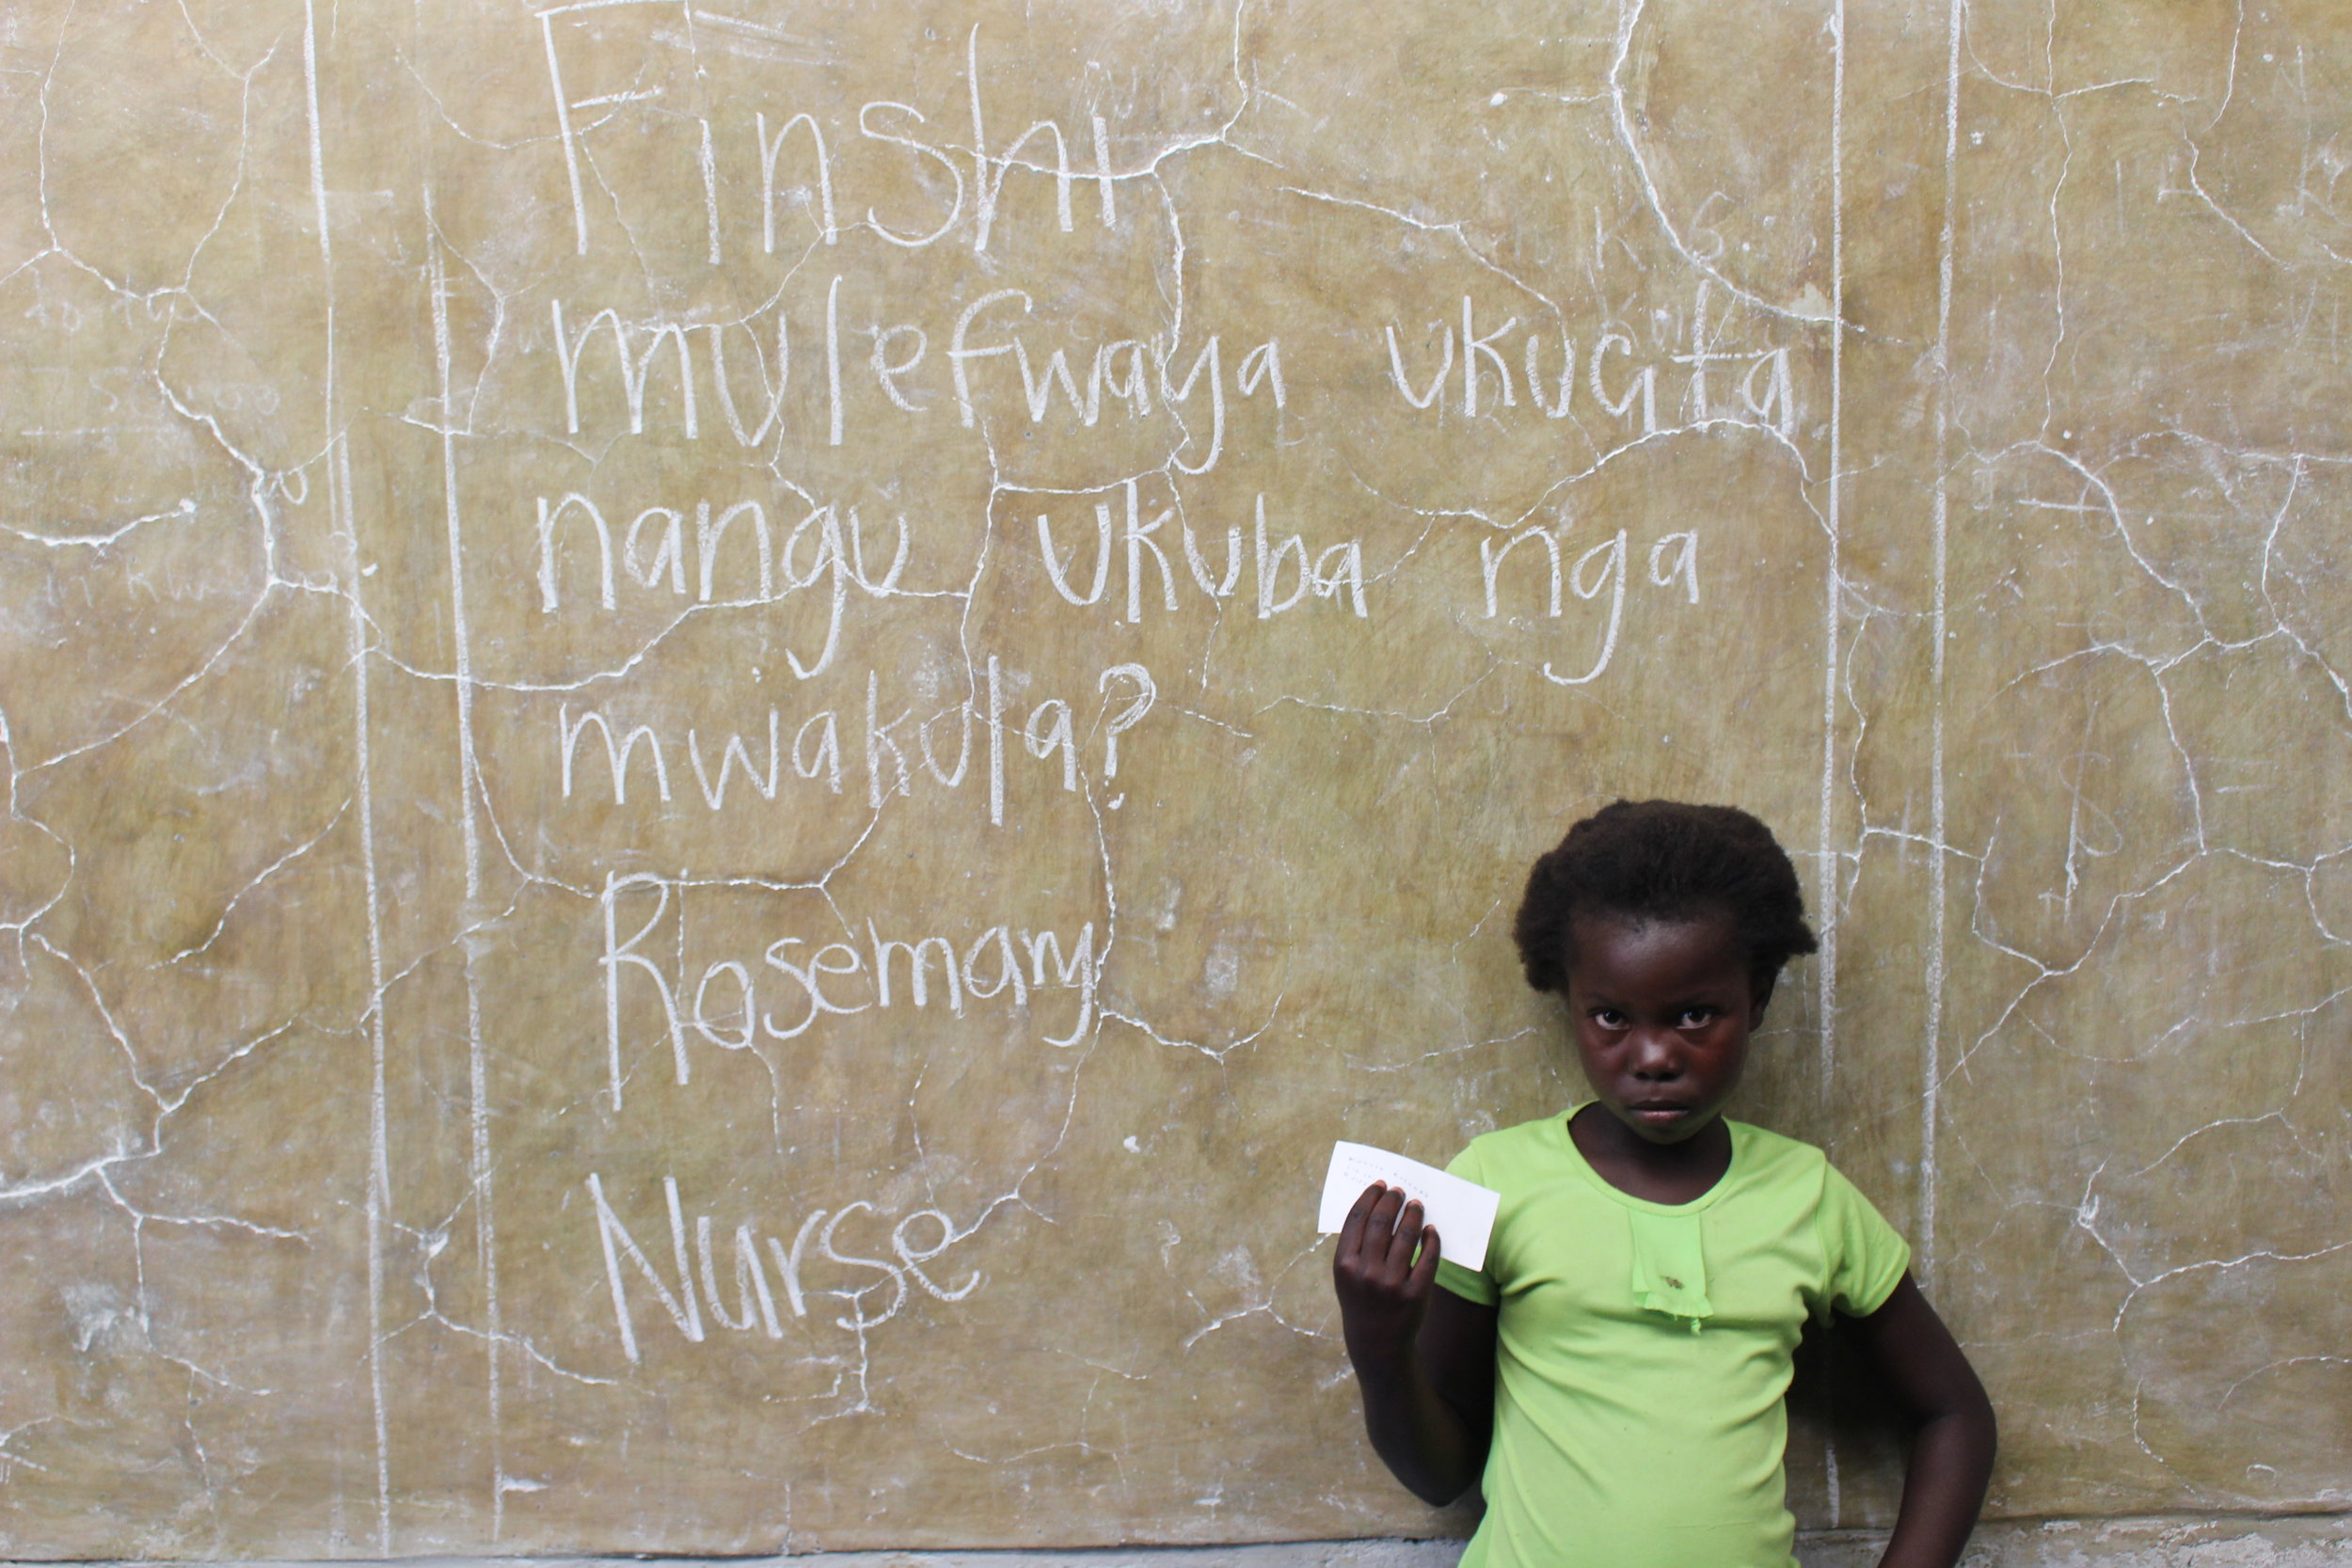 Finshi
mulefwaya ukucita
nangu ukuba nga
mwakula?
Rosemary
Nurse